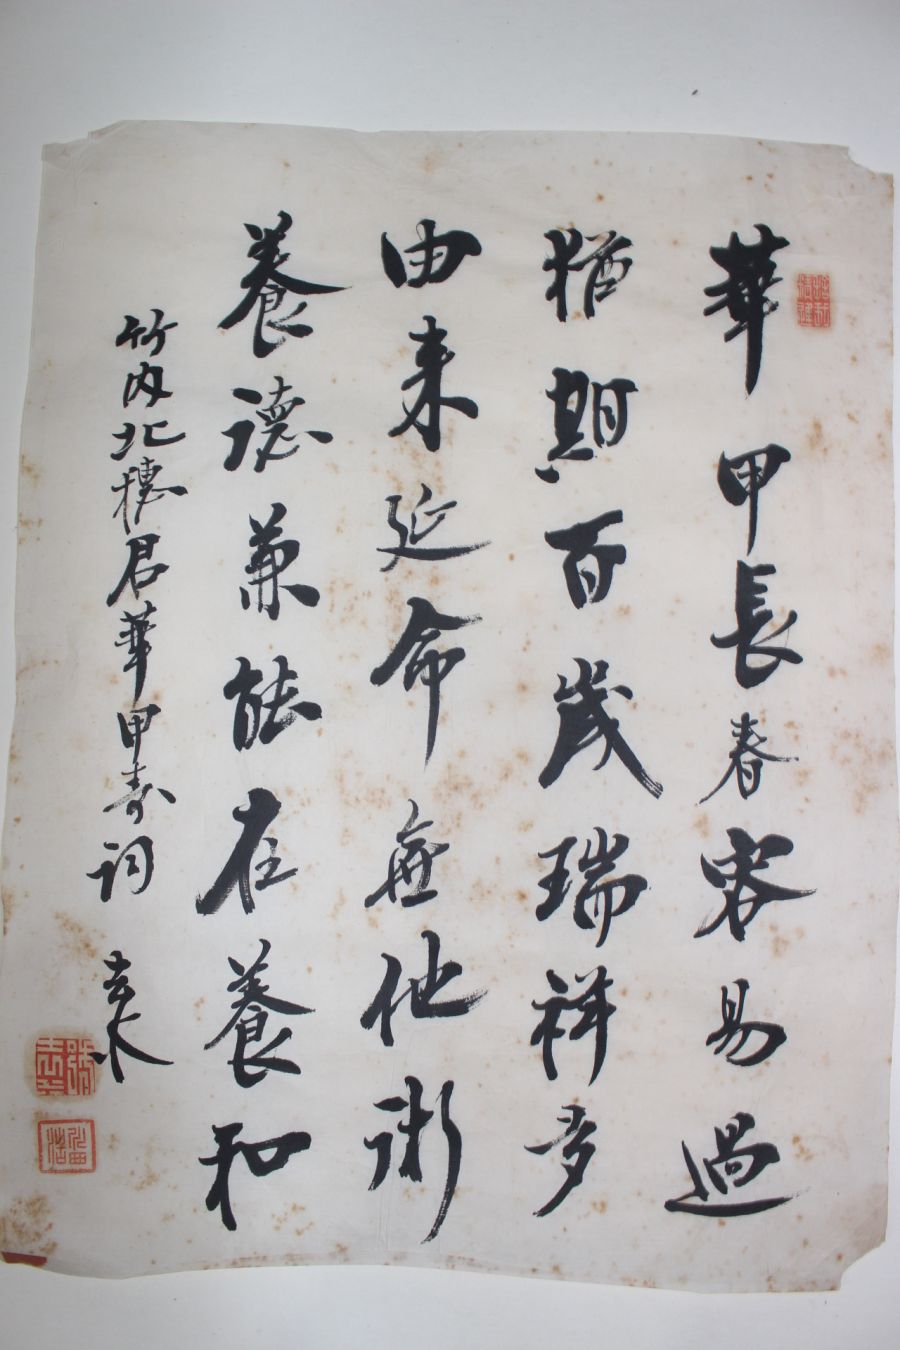 華甲長春容易過
猶期百歳瑞祥多
由来延命無他術
養德兼能在養和
竹内北穂君華甲寿詞 玄木